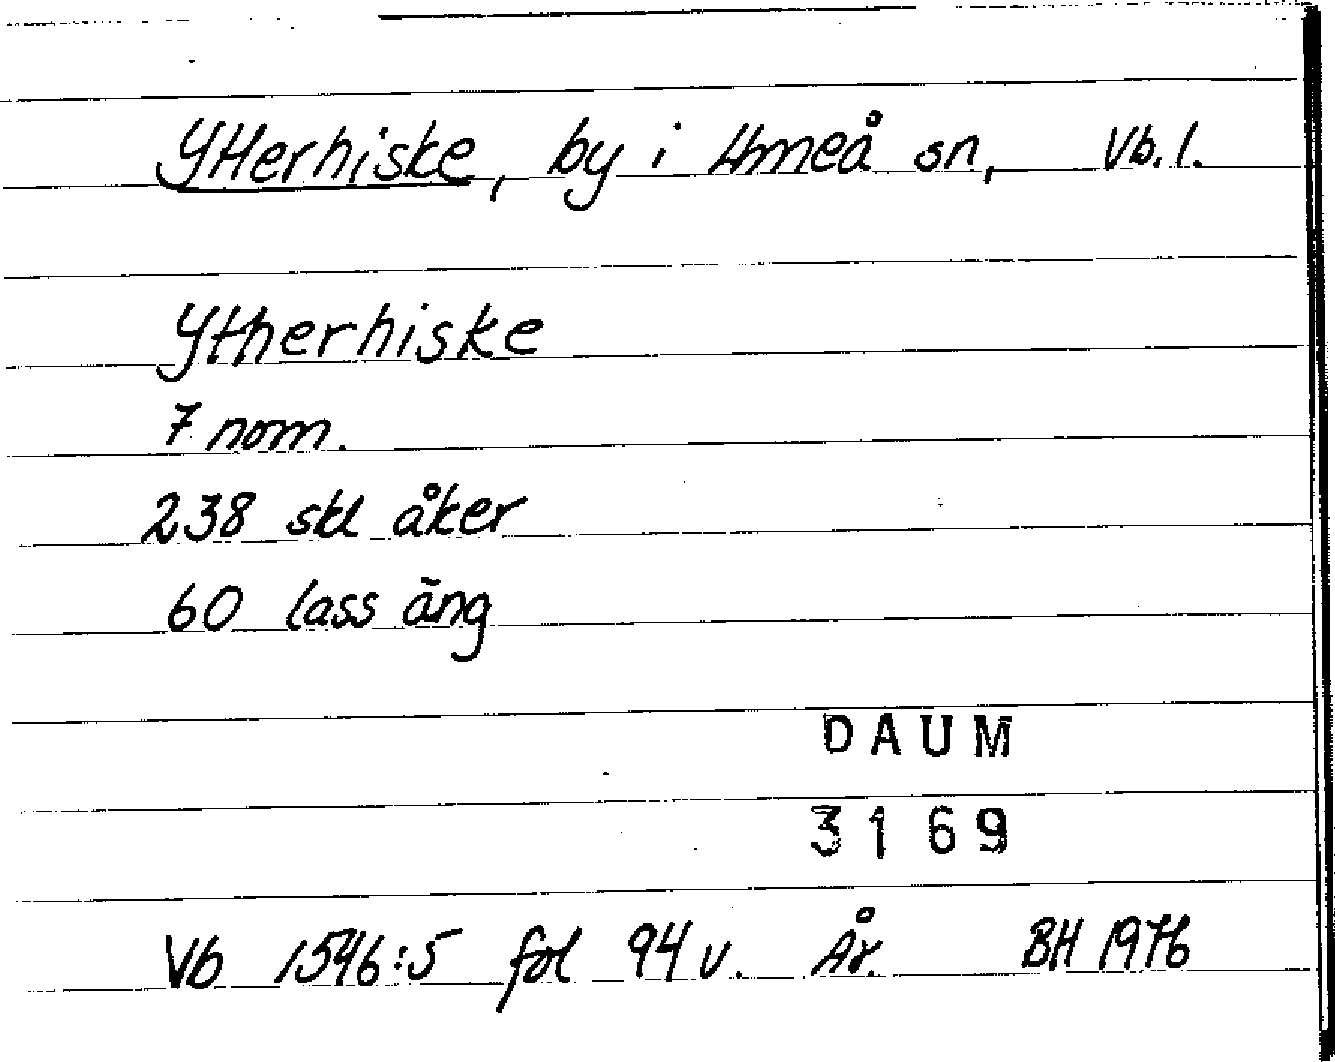 Ytterhiske, by i Umeå sn, Vb. l.
Ytherhiske
7 nom.
238 skl åker
60 lass äng
DAUM
3169
Vb 1546:5 fol 94 v. År. BH 1976